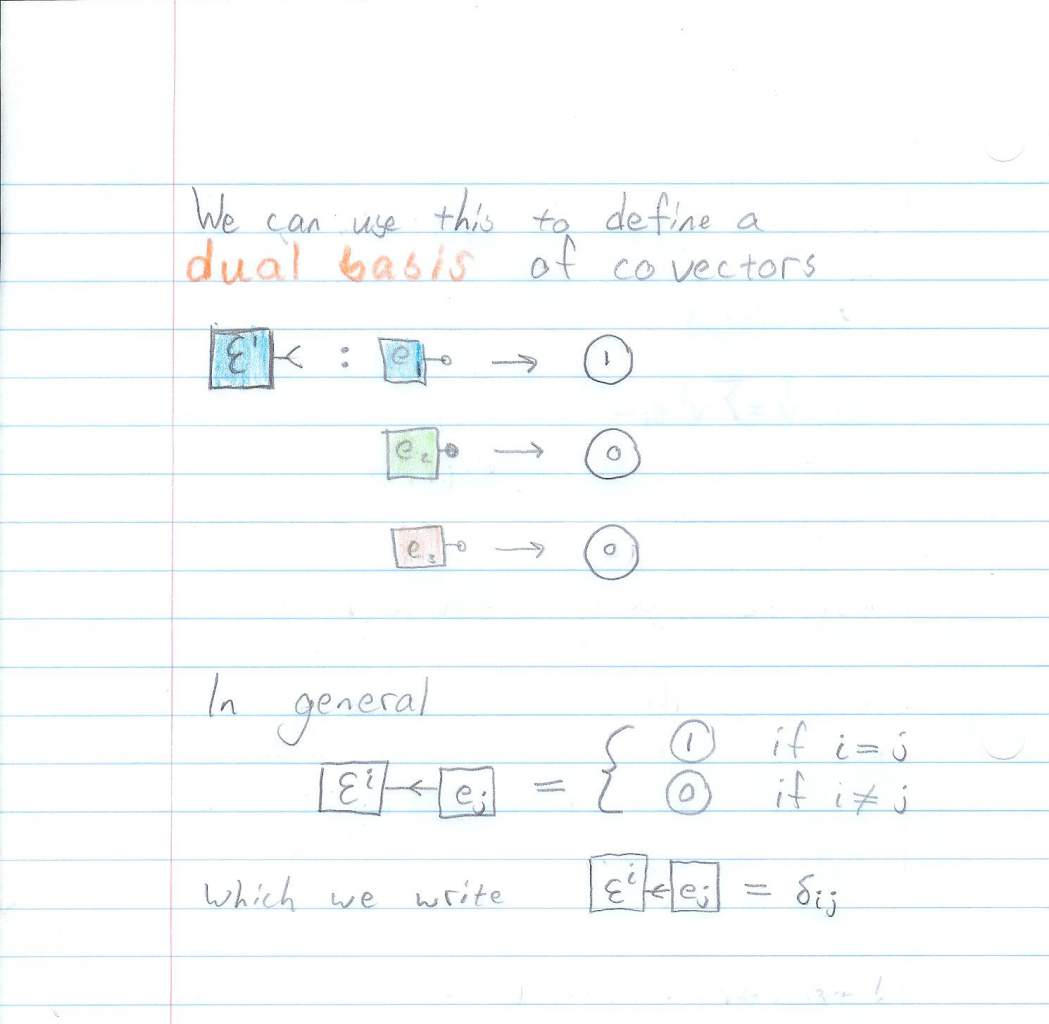 We can use this to define a
dual basis of covectors
ε¹ : e₁ → 1
e₂ → 0
e₃ → 0
In general
εⁱ ← eⱼ = { 1 if i = j
0 if i ≠ j
which we write εⁱ ← eⱼ = δᵢⱼ